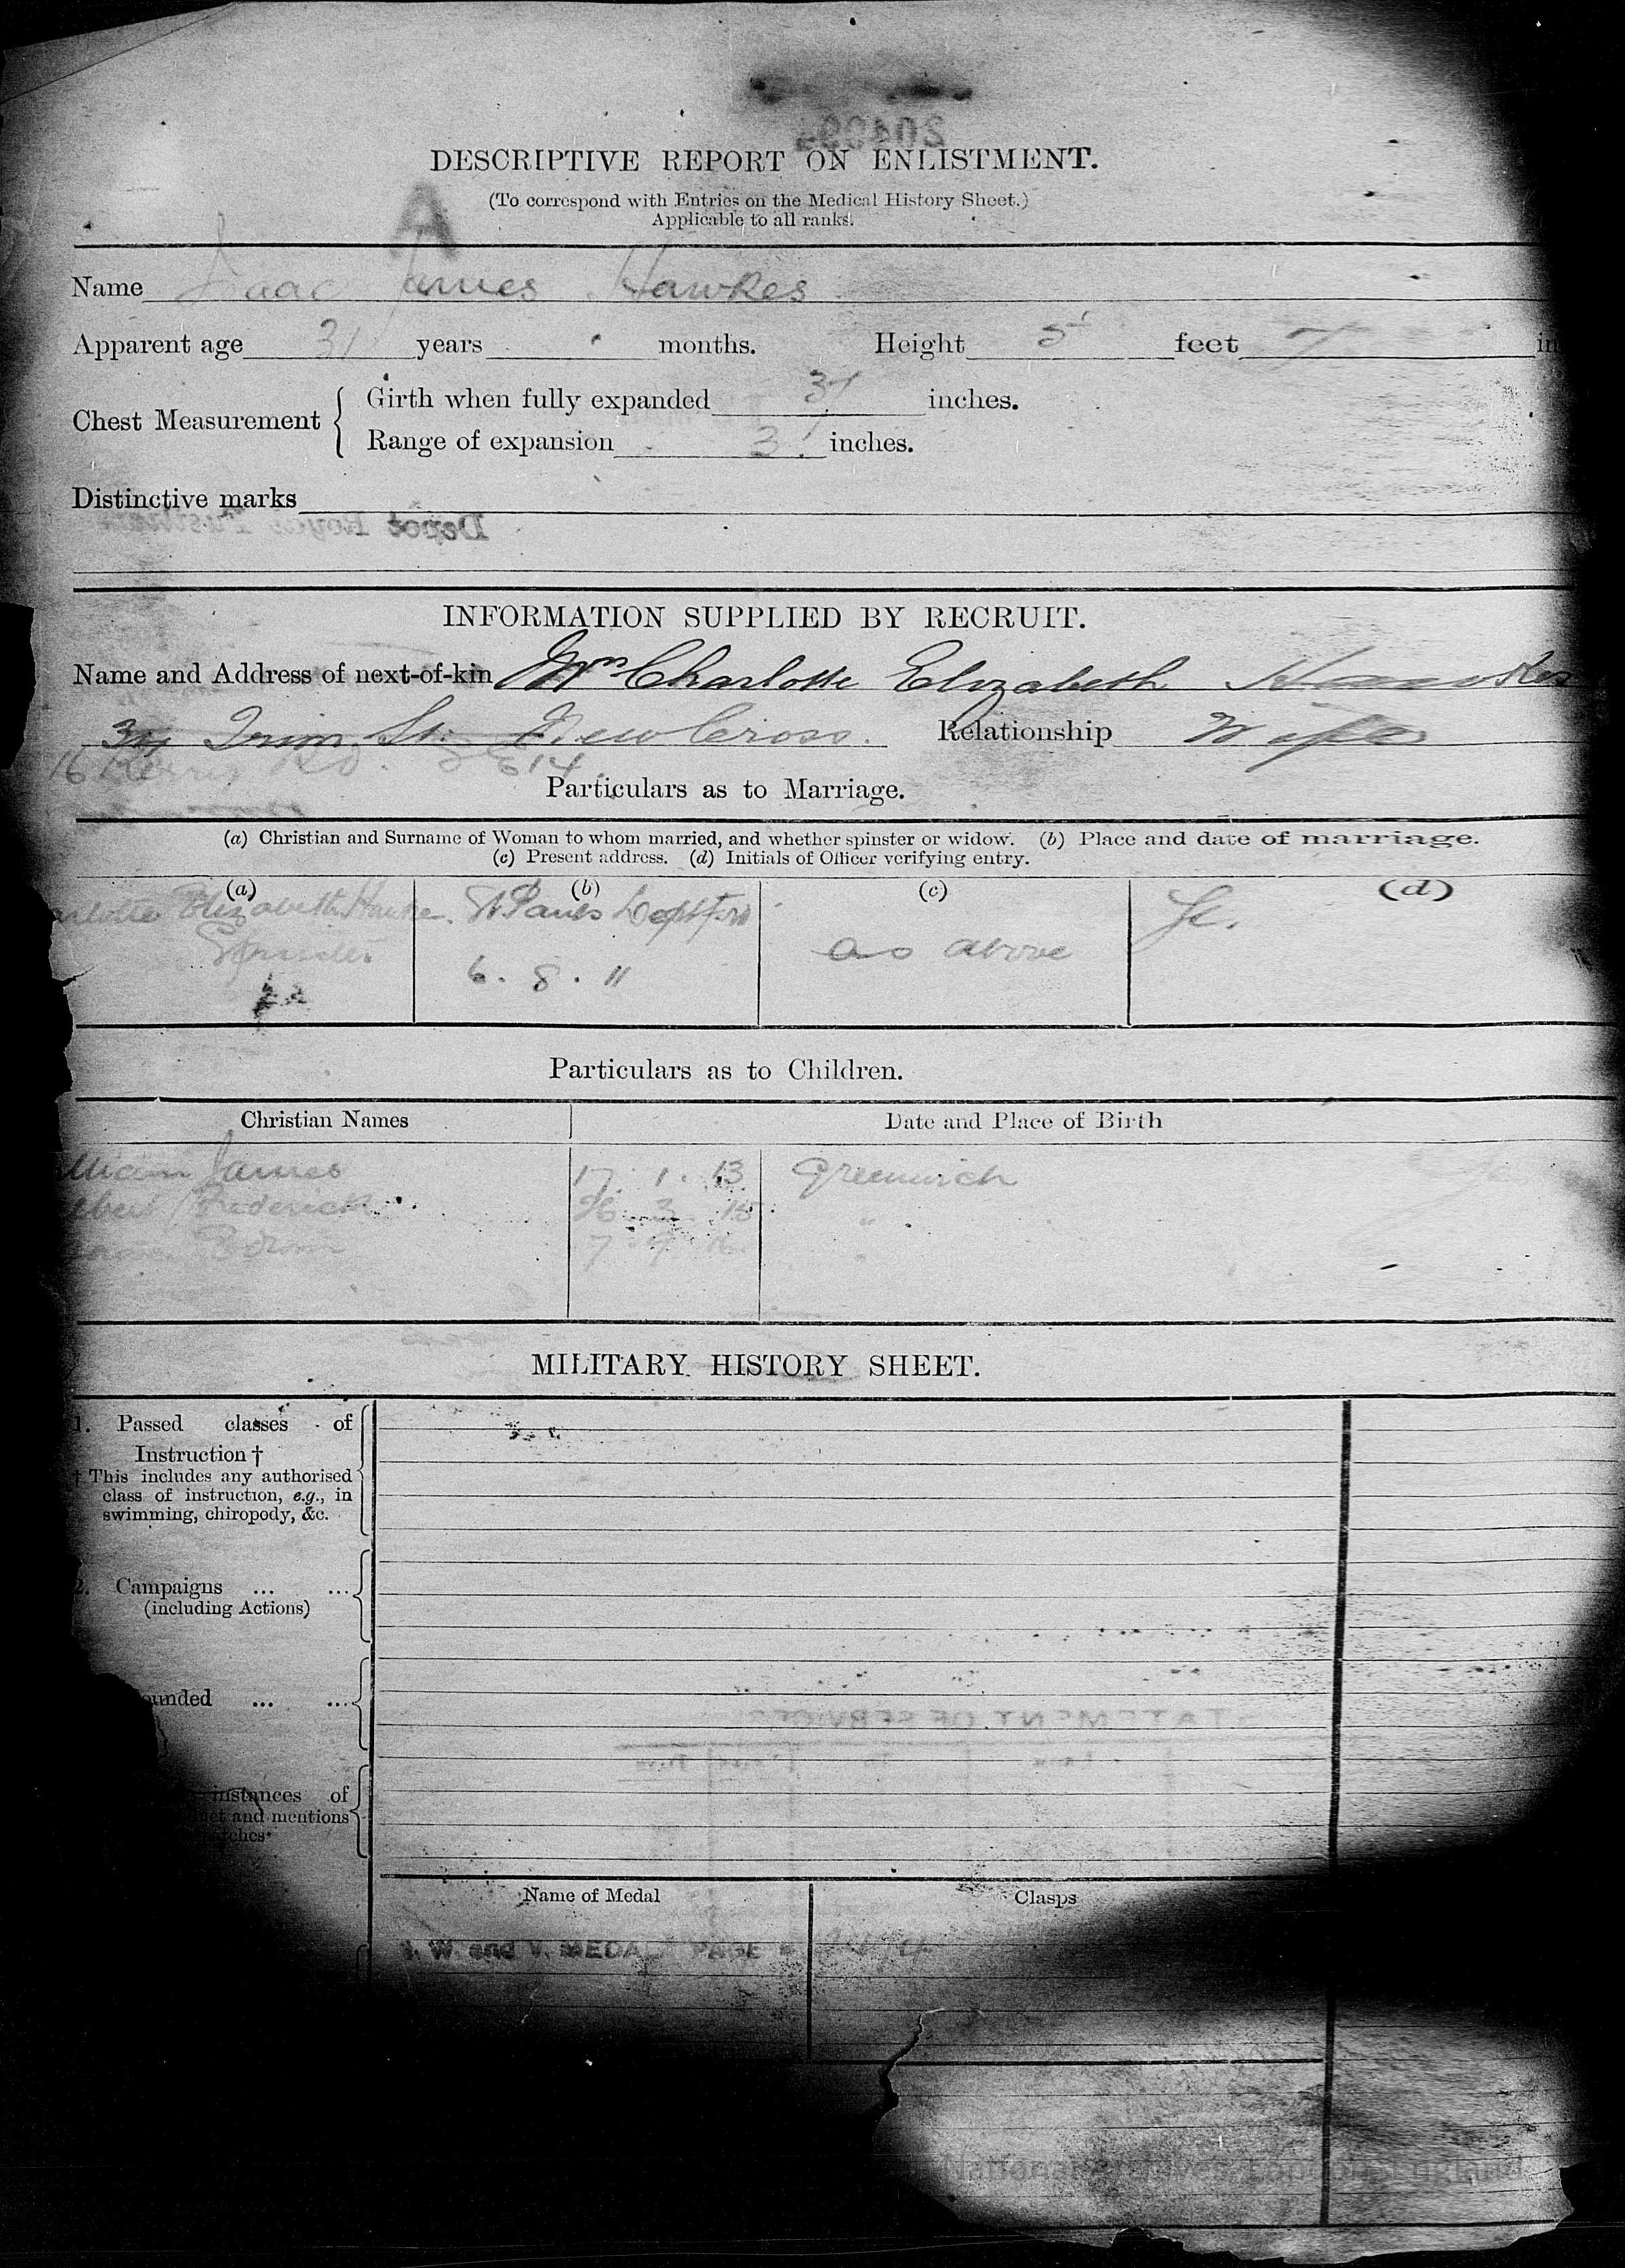 DESCRIPTIVE REPORT ON ENLISTMENT.
(To correspond with Entries on the Medical History Sheet.)
Applicable to all ranks.
A
Name Isaac James Hawkes
Apparent age 31 years months. Height 5 feet 7 in
Chest Measurement { Girth when fully expanded inches.
Range of expansion 3 inches.
Distinctive marks
Depot Royal Fusiliers
INFORMATION SUPPLIED BY RECRUIT.
Name and Address of next-of-kin Mrs Charlotte Elizabeth Hawkes
St. New Cross. Relationship Wife
16 Rd. SE 14
Particulars as to Marriage.
(a) Christian and Surname of Woman to whom married, and whether spinster or widow. (b) Place and date of marriage.
(c) Present address. (d) Initials of Officer verifying entry.
(a) (b) (c) (d)
arlotte Elizabeth St Pauls Deptford
Spinster as above
6 . 8 . 11
Particulars as to Children.
Christian Names Date and Place of Birth
lliam James 17 . 1 . 13 Greenwich
Frederick 26 3 15 "
7 . 9 "
MILITARY HISTORY SHEET.
1. Passed classes of
Instruction †
† This includes any authorised
class of instruction, e.g., in
swimming, chiropody, &c.
2. Campaigns ... ...
(including Actions)
ounded ... ...
instances of
and mentions
atches*
Name of Medal Clasps
B. W. and V. MEDAL PAGE
STATEMENT OF SERVICES
National Archives, London, England